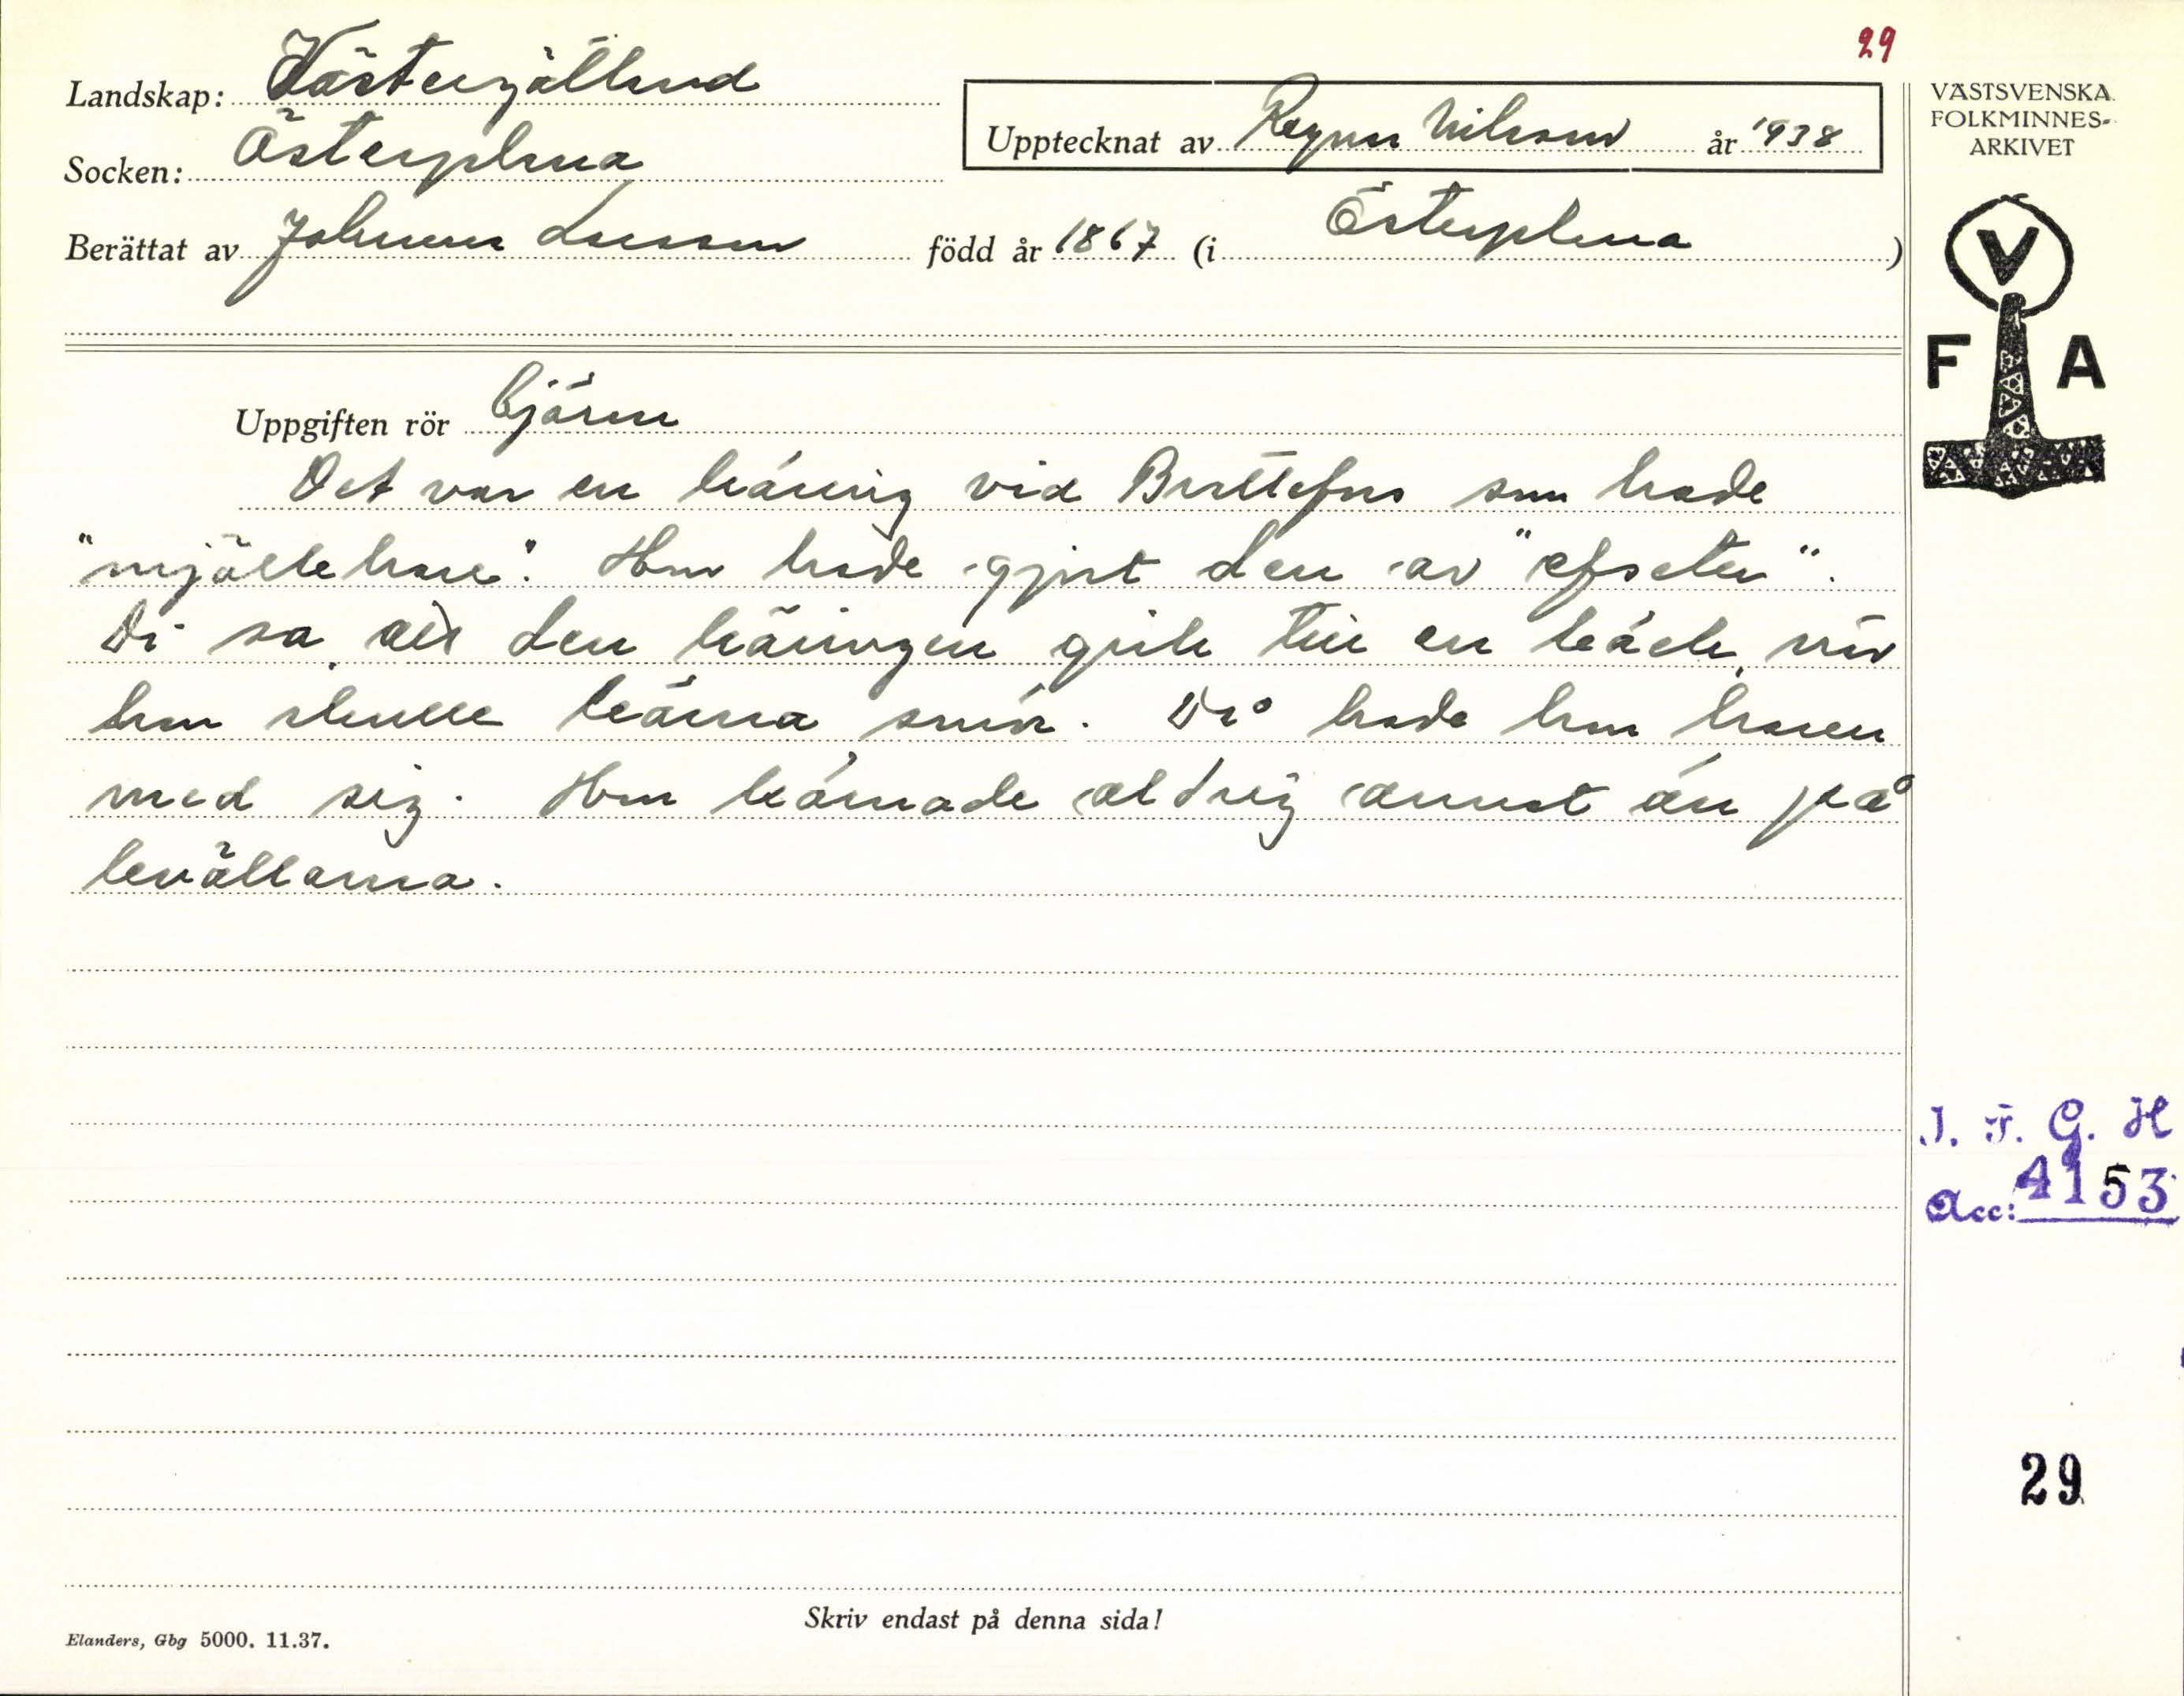 29
Landskap: Västergötland
Socken: Österplana
Upptecknat av Ragnar Nilsson år 1938
VÄSTSVENSKA
FOLKMINNES-
ARKIVET
Berättat av Johannes Larsson född år 1867 (i Österplana)
V
F A
Uppgiften rör bjären
Det var en käring vid som hade
"mjölkehare". Hon hade gjort den av "efseter".
Di sa, att den käringen gick till en källa, när
hon skulle kärna smör. Då hade hon haren
med sig. Hon kärnade aldrig annat än på
kvällarna.
I. F. G. H
Acc: 4153
29
Skriv endast på denna sida!
Elanders, Gbg 5000. 11.37.